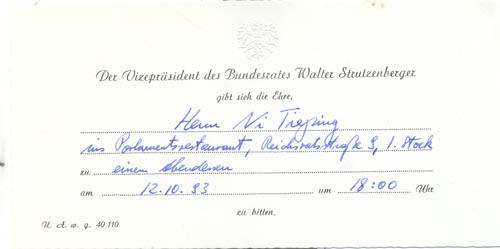 Der Vizepräsident des Bundesrates Walter Strutzenberger
gibt sich die Ehre,
Herrn Ni Tieping
ins Parlamentsrestaurant, Reichsratsstraße 9, 1. Stock
zu einem Abendessen
am 12.10.93 um 18:00 Uhr
zu bitten.
U. A. w. g. 40 110